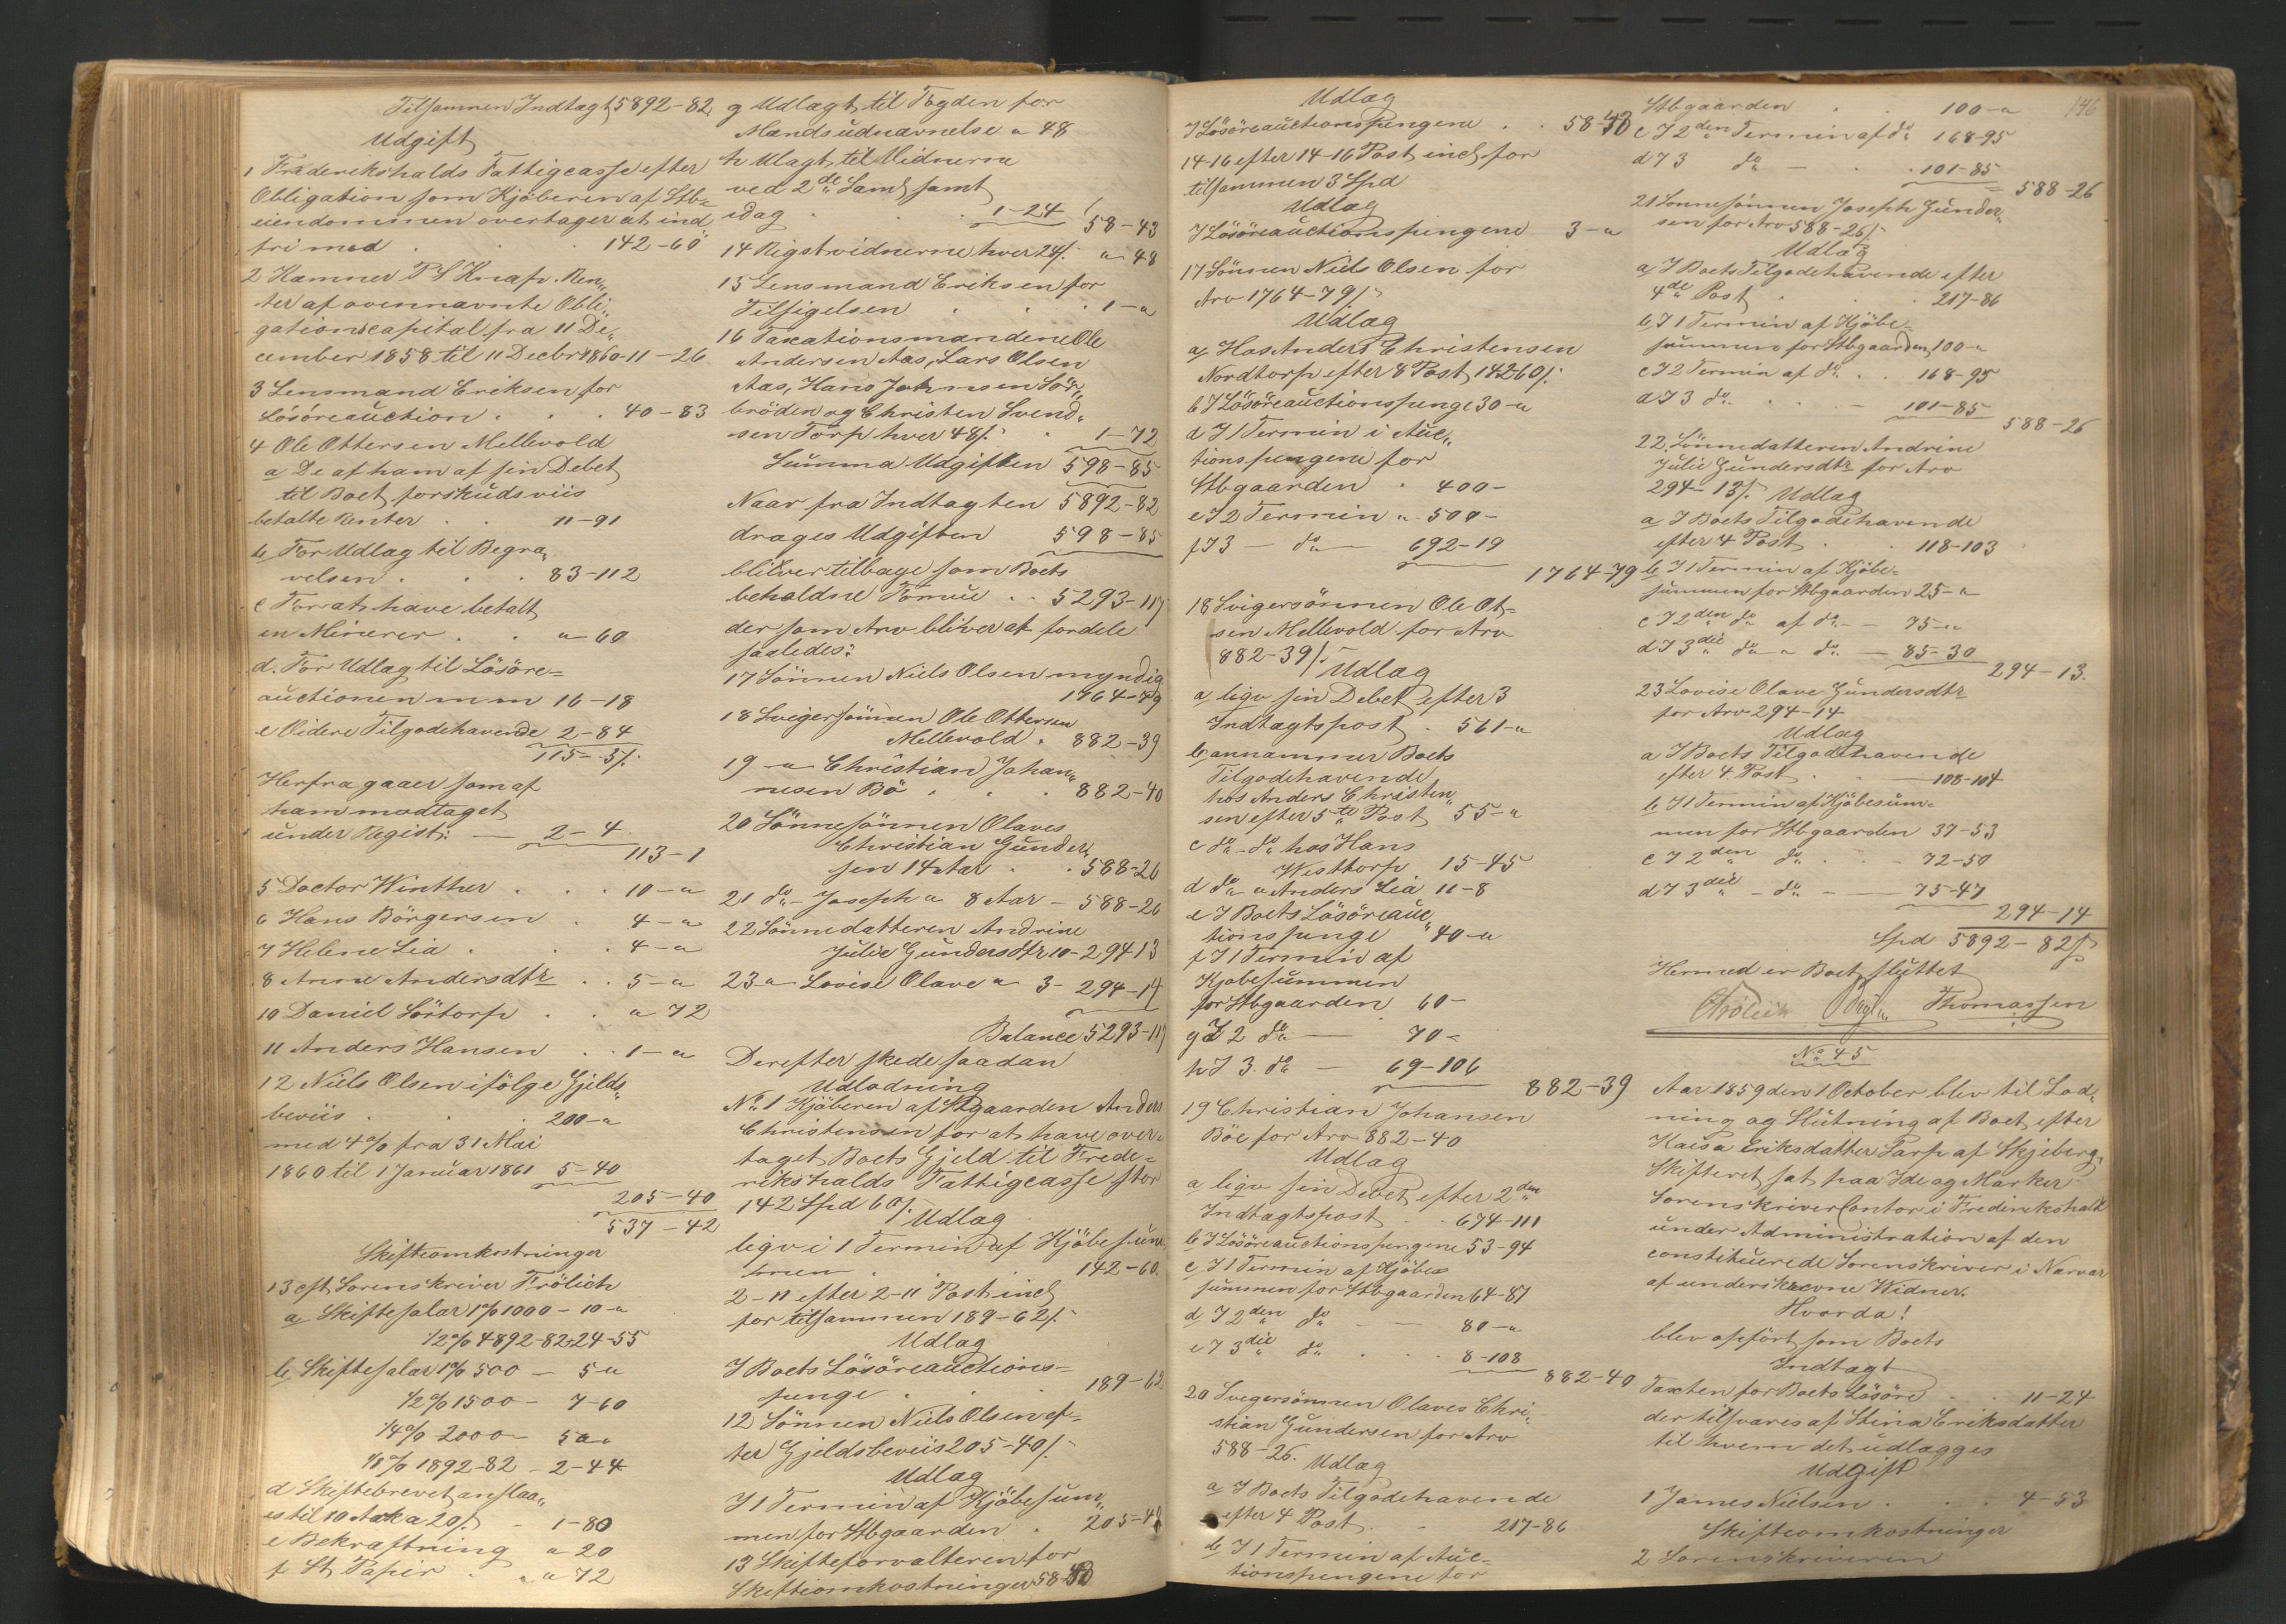 Tilsammen Indtægt 5892-82
Udgift
1 Frederikshalds Fattigcasse efter
Obligation som Kjøberen af Stb=
eiendommen overtager at ind
fri med . . 142-60
2 Kæmner P S Knap. Ren„
ter af ovennævnte Obli„
gationscapital fra 11 De„
cember 1858 til 11 Decbr 1860-11-26
3 Lensmand Eriksen for
Lösöreauction . . . 40-83
4 Ole Ottersen Mellevold
a De af ham af sin Debet
til Boet forskudsviis
betalte Renter . . 11-91
b For Udlæg til Begra„
velsen . . . 83-112
c For at have betalt
en Minerer . . " 60
d. For Udlæg til Lösöre=
auctionen m m 16-18
e Videre Tilgodehavende 2-84
115-5/.
Herfra gaaer som af
ham modtaget
under Regist: — 2-4
113-1
5 Doctor Winther . . . 10-"
6 Hans Börgersen . 4-"
7 Helene Lia . . . 4-"
8 Anne Andersdtr . . 5-"
10 Daniel Sörtorp . . " 72
11 Anders Hansen . . 1-"
12 Niels Olsen ifölge Gjelds„
beviis . . . 200-"
med 4% fra 31 Mai
1860 til 1 Januar 1861 5-40
205-40
537-42
Skifteomkostninger
13 eft Sorenskriver Frölich
a Skiftesalær 1% 1000-10-"
1/2% 4892-82-24-55
b Skiftesalær 1% 500 — 5 "
1/2% 1500 - 7-60
1/4% 2000 - 5 " "
1/8% 1892-82 - 2-44
d Skiftebrevet anslaa„
es til 10 Ark a 20/ - 1-80
e Bekræftning " 20
f St Papir . " " 72
g Udlagt til Fogden for
Mændsudnævnelse " 48
h Ulagt til Vidnerne
ved 2de Saml samt
idag . . . 1-24
58-43
14 Rigstvidnerne hver 24/. " 48
15 Lensmand Eriksen for
Tilsigelsen . . 1-"
16 Taxationsmændene Ole
Andersen Aas, Lars Olsen
Aas, Hans Johnsen Sör„
bröden og Christen Svend„
sen Torp hver 48/. . 1-72
Summa Udgiften 598-85
Naar fra Indtægten 5892-82
drages Udgiften 598-85
bliver tilbage som Boets
beholdne Formue . . 5293-117
der som Arv bliver at fordele
saaledes:
17 Sönnen Niels Olsen myndig
1764-79
18 Svigersönnen Ole Ottersen
Mellevold . 882-39
19 " Christian Johan„
nesen Bö . . . 882-40
20 Sönnesönnen Olaves
Christian Gunder„
sen 14 Aar . . 588-26
21 do - Joseph " 8 Aar - 588-26
22 Sönnedatteren Andrine
Julie Gundersdtr 10-294 13
23 " Lovise Olave " 3- 294-14
Balance 5293-117
Derefter skede saadan
Udlodning
No 1 Kjöberen af Stbgaarden Anders
Christensen for at have over„
taget Boets Gjeld til Frede=
rikshalds Fattigcasse stor
142 Spd 60/.
Udlæg
ligv i 1 Termin af Kjöbesum„
men . . . 142-60.
2-11 efter 2-11 Post incl
for tilsammen 189-62/.
Udlæg
I Boets Lösöreauctions=
penge . . . 189-62
12 Sönnen Niels Olsen ef=
ter Gjeldsbeviis 205-40/.
Udlæg
I 1 Termin af Kjöbesum„
men for Stbgaarden . 205-40
13 Skifteforvalteren for
Skifteomkostninger 58-43
Udlæg
I Lösöreauctionspengene . . 58-43
14-16 efter 14-16 Post incl for
tilsammen 3 Spd
Udlæg
I Lösöreauctionspengene 3-"
17 Sönnen Niels Olsen for
Arv 1764-79/.
Udlæg
a, Hos Anders Christensen
Nordtorp efter 8 Post, 14260/.
b I Lösöreauctionspenge 30-"
d I 1 Termin i Auc„
tionspengene for
Stbgaarden . 400-
e I 2 Termin " 500-
f I 3 — do — 692-19
1764-79
18 Svigersönnen Ole Ot=
sen Mellevold for Arv
882-39/.
Udlæg
a ligv sin Debet efter 3
Indtægtspost . 561-"
b, annammer Boets
Tilgodehavende
hos Anders Christen„
sen efter 5te Post 55-"
c do - do hos Hans
Westtorp 15-45
d do " Anders Lia 11-8
e I Boets Lösöreauc„
tionspenge 40-"
f I 1 Termin af
Kjøbesummen
for Stbgaarden 60-
g I 2 do — 70-
h I 3. do — 69-106
882-39
19 Christian Johansen
Böe for Arv 882-40
Udlæg
a ligv sin Debet efter 2den
Indtægtspost . . 674-111
b I Lösöreauctionspengene 53-94
c I 1 Termin af Kjöbe=
summen for Stbgaarden 64-87
d I 2den do — — 80-"
e I 3die do . . 8-108
882-40
20 Svegersönnen Olaves Chri„
stian Gundersen for Arv
588-26.
Udlæg
a I Boets Tilgodehavende
efter 4 Post . - 217-86
b I 1 Termin af Auc=
tionspengene for
146
Stbgaarden . . 100-"
c I 2den Termin af do 168-95
d I 3 do — . . 101-85
588-26
21 Sönnesönnen Joseph Gunder„
sen for Arv 588-26/.
Udlæg
a, I Boets Tilgodehavende efter
4de Post . . 217-86
b, I 1 Termin af Kjöbe=
summen for Stbgaarden, 100-"
c I 2 Termin af do . . 168-95
d I 3 do . . — 101-85
588-26
22. Sönnedatteren Andrine
Julie Gundersdtr for Arv
294-13/.
Udlæg
a I Boets Tilgodehavende
efter 4 Post . . 118-103
b I 1 Termin af Kjöbe=
summen for Stbgaarden 25-"
c I 2den do af do - - 75-"
d I 3die do " do — 85-30
294-13.
23 Lovise Olave Gundersdtr
for Arv 294-14
Udlæg
a I Boets Tilgodehavende
efter 4 Post . . — 108-104
b I 1 Termin af Kjöbesum=
men for Stbgaarden 37-53
c I 2den do . . - 72-50
d I 3die - do - — 75-47
294-14
Spd 5892-82/.
Hermed er Boet sluttet
Frölich Thomassen
No 45
Aar 1859 den 1 October blev til Lod„
ning og Slutning af Boet efter
Kaisa Eriksdatter Torp af Skjeberg,
Skifteret sat paa Ide og Marker
SorenskriverContor i Frederikshald
under Administration af den
constituerede Sorenskriver i Nærvær
af underskrevne Widner.
Hvorda!
blev opfört som Boets
Indtægt
Taxten for Boets Lösöre . . 11-24
der tilsvares af Stina Eriksdatter
til hvem det udlægges
Udgift
1 James Nielsen . . . 4-53
Skifteomkostninger
2 Sorenskriveren